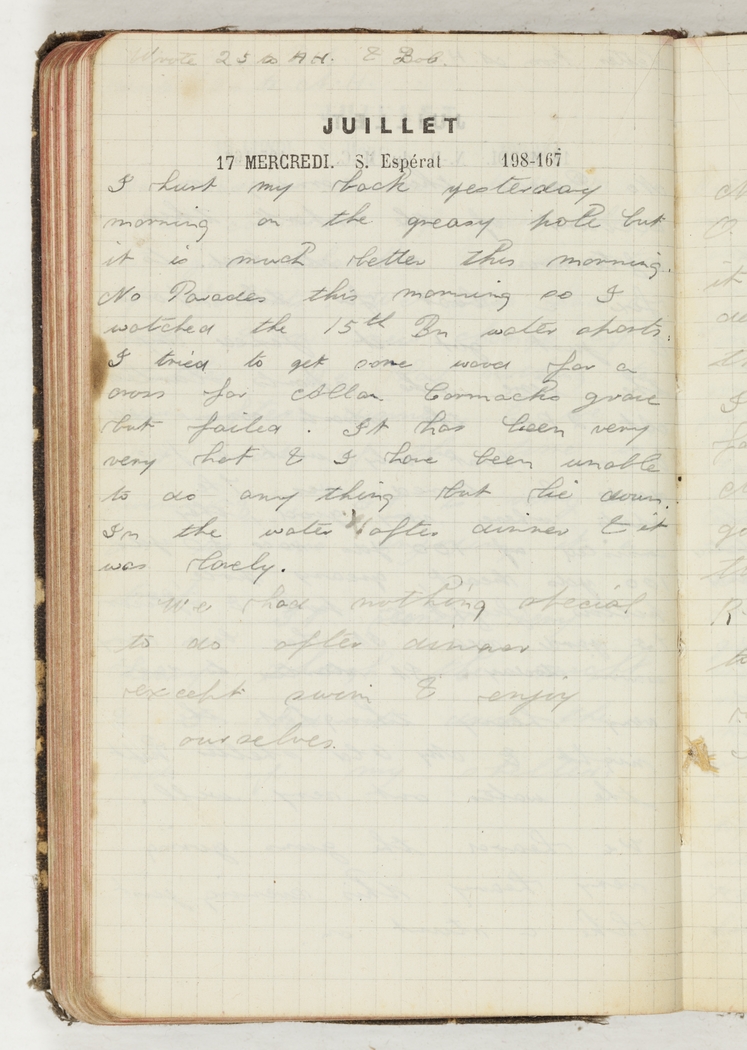 Wrote 25 to Ad. & Bob.
JUILLET
17 MERCREDI. S. Espérat 198-167
I hurt my back yesterday
morning on the greasy pole but
it is much better this morning.
No Parades this morning so I
watched the 15th Bn water sports.
I tried to get some wood for a
cross for Allan Cormacks grave
but failed. It has been very
very hot & I have been unable
to do any thing but lie down.
In the water after dinner & it
was lovely.
We had nothing special
to do after dinner
except swim & enjoy
ourselves.